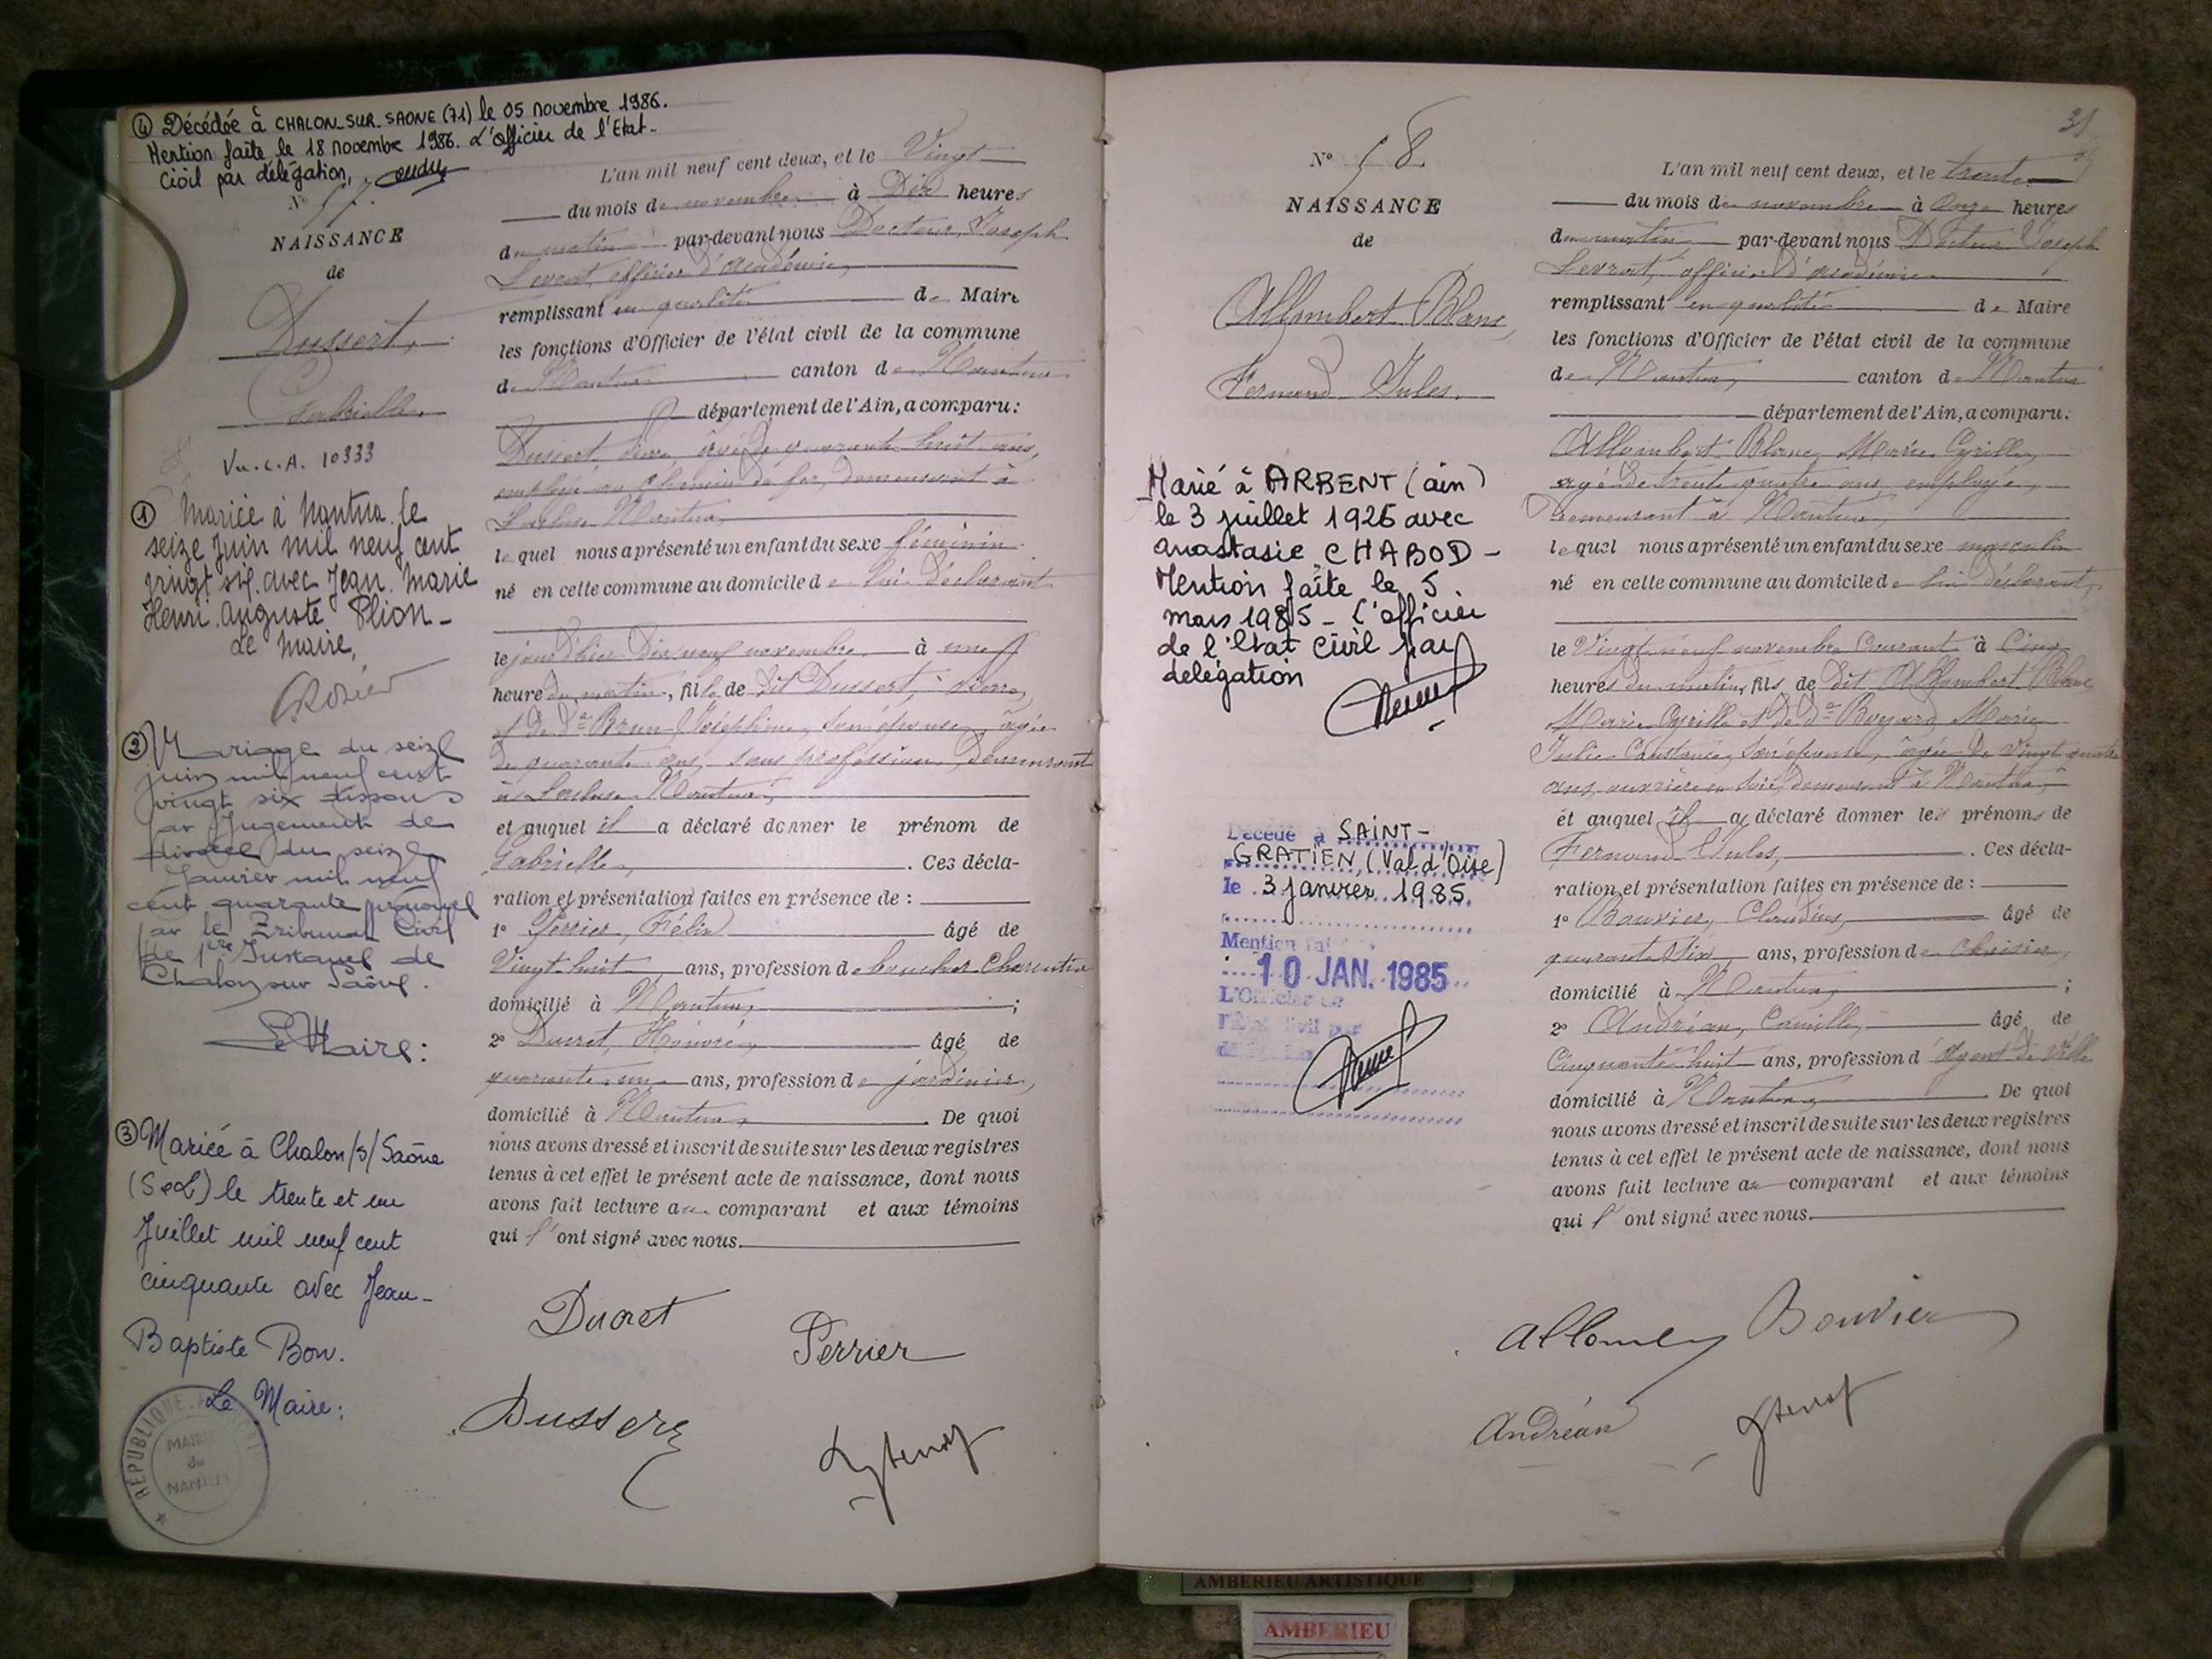 ④ Décédée à CHALON-SUR-SAONE (71) le 05 novembre 1986.
Mention faite le 18 novembre 1986. L'officier de l'Etat-
Civil par délégation,
N° 57.
NAISSANCE
de
Dussert,
Gabrielle.
Vu. C.A. 10333
① Mariée à Nantua le
seize Juin mil neuf cent
vingt six avec Jean Marie
Henri Auguste Plion -
Le Maire,
② Mariage du seize
juin mil neuf cent
vingt six dissous
par Jugement de
divorce du seize
Janvier mil neuf
cent quarante prononcé
par le Tribunal Civil
de 1ère Instance de
Chalon sur Saône.
Le Maire :
③ Mariée à Chalon/s/Saône
(S&L) le trente et un
Juillet mil neuf cent
cinquante avec Jean-
Baptiste Bon.
Le Maire :
RÉPUBLIQUE
MAIRIE
de
NANTUA
L'an mil neuf cent deux, et le Vingt
du mois de novembre à Dix heures
du matin par-devant nous Docteur Joseph
Levrat, officier d'Académie,
remplissant en qualité de Maire
les fonctions d'Officier de l'état civil de la commune
de Nantua canton de Nantua
département de l'Ain, a comparu :
Dussert Pierre, âgé de quarante huit ans,
employé au Chemin de fer, demeurant à
Nantua,
lequel nous a présenté un enfant du sexe féminin
né en cette commune au domicile de lui déclarant
le jour d'hier Dix neuf novembre à une
heure du matin, fille de dit Dussert, Pierre,
et de de Brun Joséphine, son épouse, âgée
de quarante ans, sans profession, demeurant
à Nantua,
et auquel il a déclaré donner le prénom de
Gabrielle, Ces décla-
ration et présentation faites en présence de :
1° Perrier, Félix âgé de
Vingt huit ans, profession de boucher Charcutier
domicilié à Nantua, ;
2° Ducret, Honoré, âgé de
quarante un ans, profession de jardinier,
domicilié à Nantua, De quoi
nous avons dressé et inscrit de suite sur les deux registres
tenus à cet effet le présent acte de naissance, dont nous
avons fait lecture au comparant et aux témoins
qui l'ont signé avec nous.
Ducret
Perrier
Dussert
N° 58.
NAISSANCE
de
Allombert Blanc,
Fernand Jules.
Marié à ARBENT (ain)
le 3 juillet 1926 avec
anastasie CHABOD -
Mention faite le 5
mars 1985 - L'officier
de l'Etat Civil par
délégation
Décédé à SAINT-
GRATIEN, (Val d'Oise)
le 3 janvier 1985
Mention faite
10 JAN. 1985
L'Officier de
l'État Civil par
L'an mil neuf cent deux, et le trente
du mois de novembre à onze heures
du matin par-devant nous Docteur Joseph
Levrat, officier d'Académie
remplissant en qualité de Maire
les fonctions d'Officier de l'état civil de la commune
de Nantua, canton de Nantua
département de l'Ain, a comparu :
Allombert Blanc, Marie Cyrille,
âgé de trente quatre ans, employé,
demeurant à Nantua,
lequel nous a présenté un enfant du sexe masculin
né en cette commune au domicile de lui déclarant,
le Vingt neuf novembre Courant à Cinq
heures du matin, fils de dit Allombert Blanc
Marie Cyrille et de de Marie
Julie Constance, son épouse, âgée de vingt quatre
ans, ouvrière en soie, demeurant à Nantua,
et auquel il a déclaré donner les prénoms de
Fernand Jules, Ces décla-
ration et présentation faites en présence de :
1° Bouvier, Claudius, âgé de
quarante six ans, profession de
domicilié à Nantua, ;
2° Andréan, Camille, âgé de
Cinquante huit ans, profession d'Agent de Ville
domicilié à Nantua De quoi
nous avons dressé et inscrit de suite sur les deux registres
tenus à cet effet le présent acte de naissance, dont nous
avons fait lecture au comparant et aux témoins
qui l'ont signé avec nous.
Bouvier
Andréan
AMBERIEU ARTISTIQUE
AMBERIEU